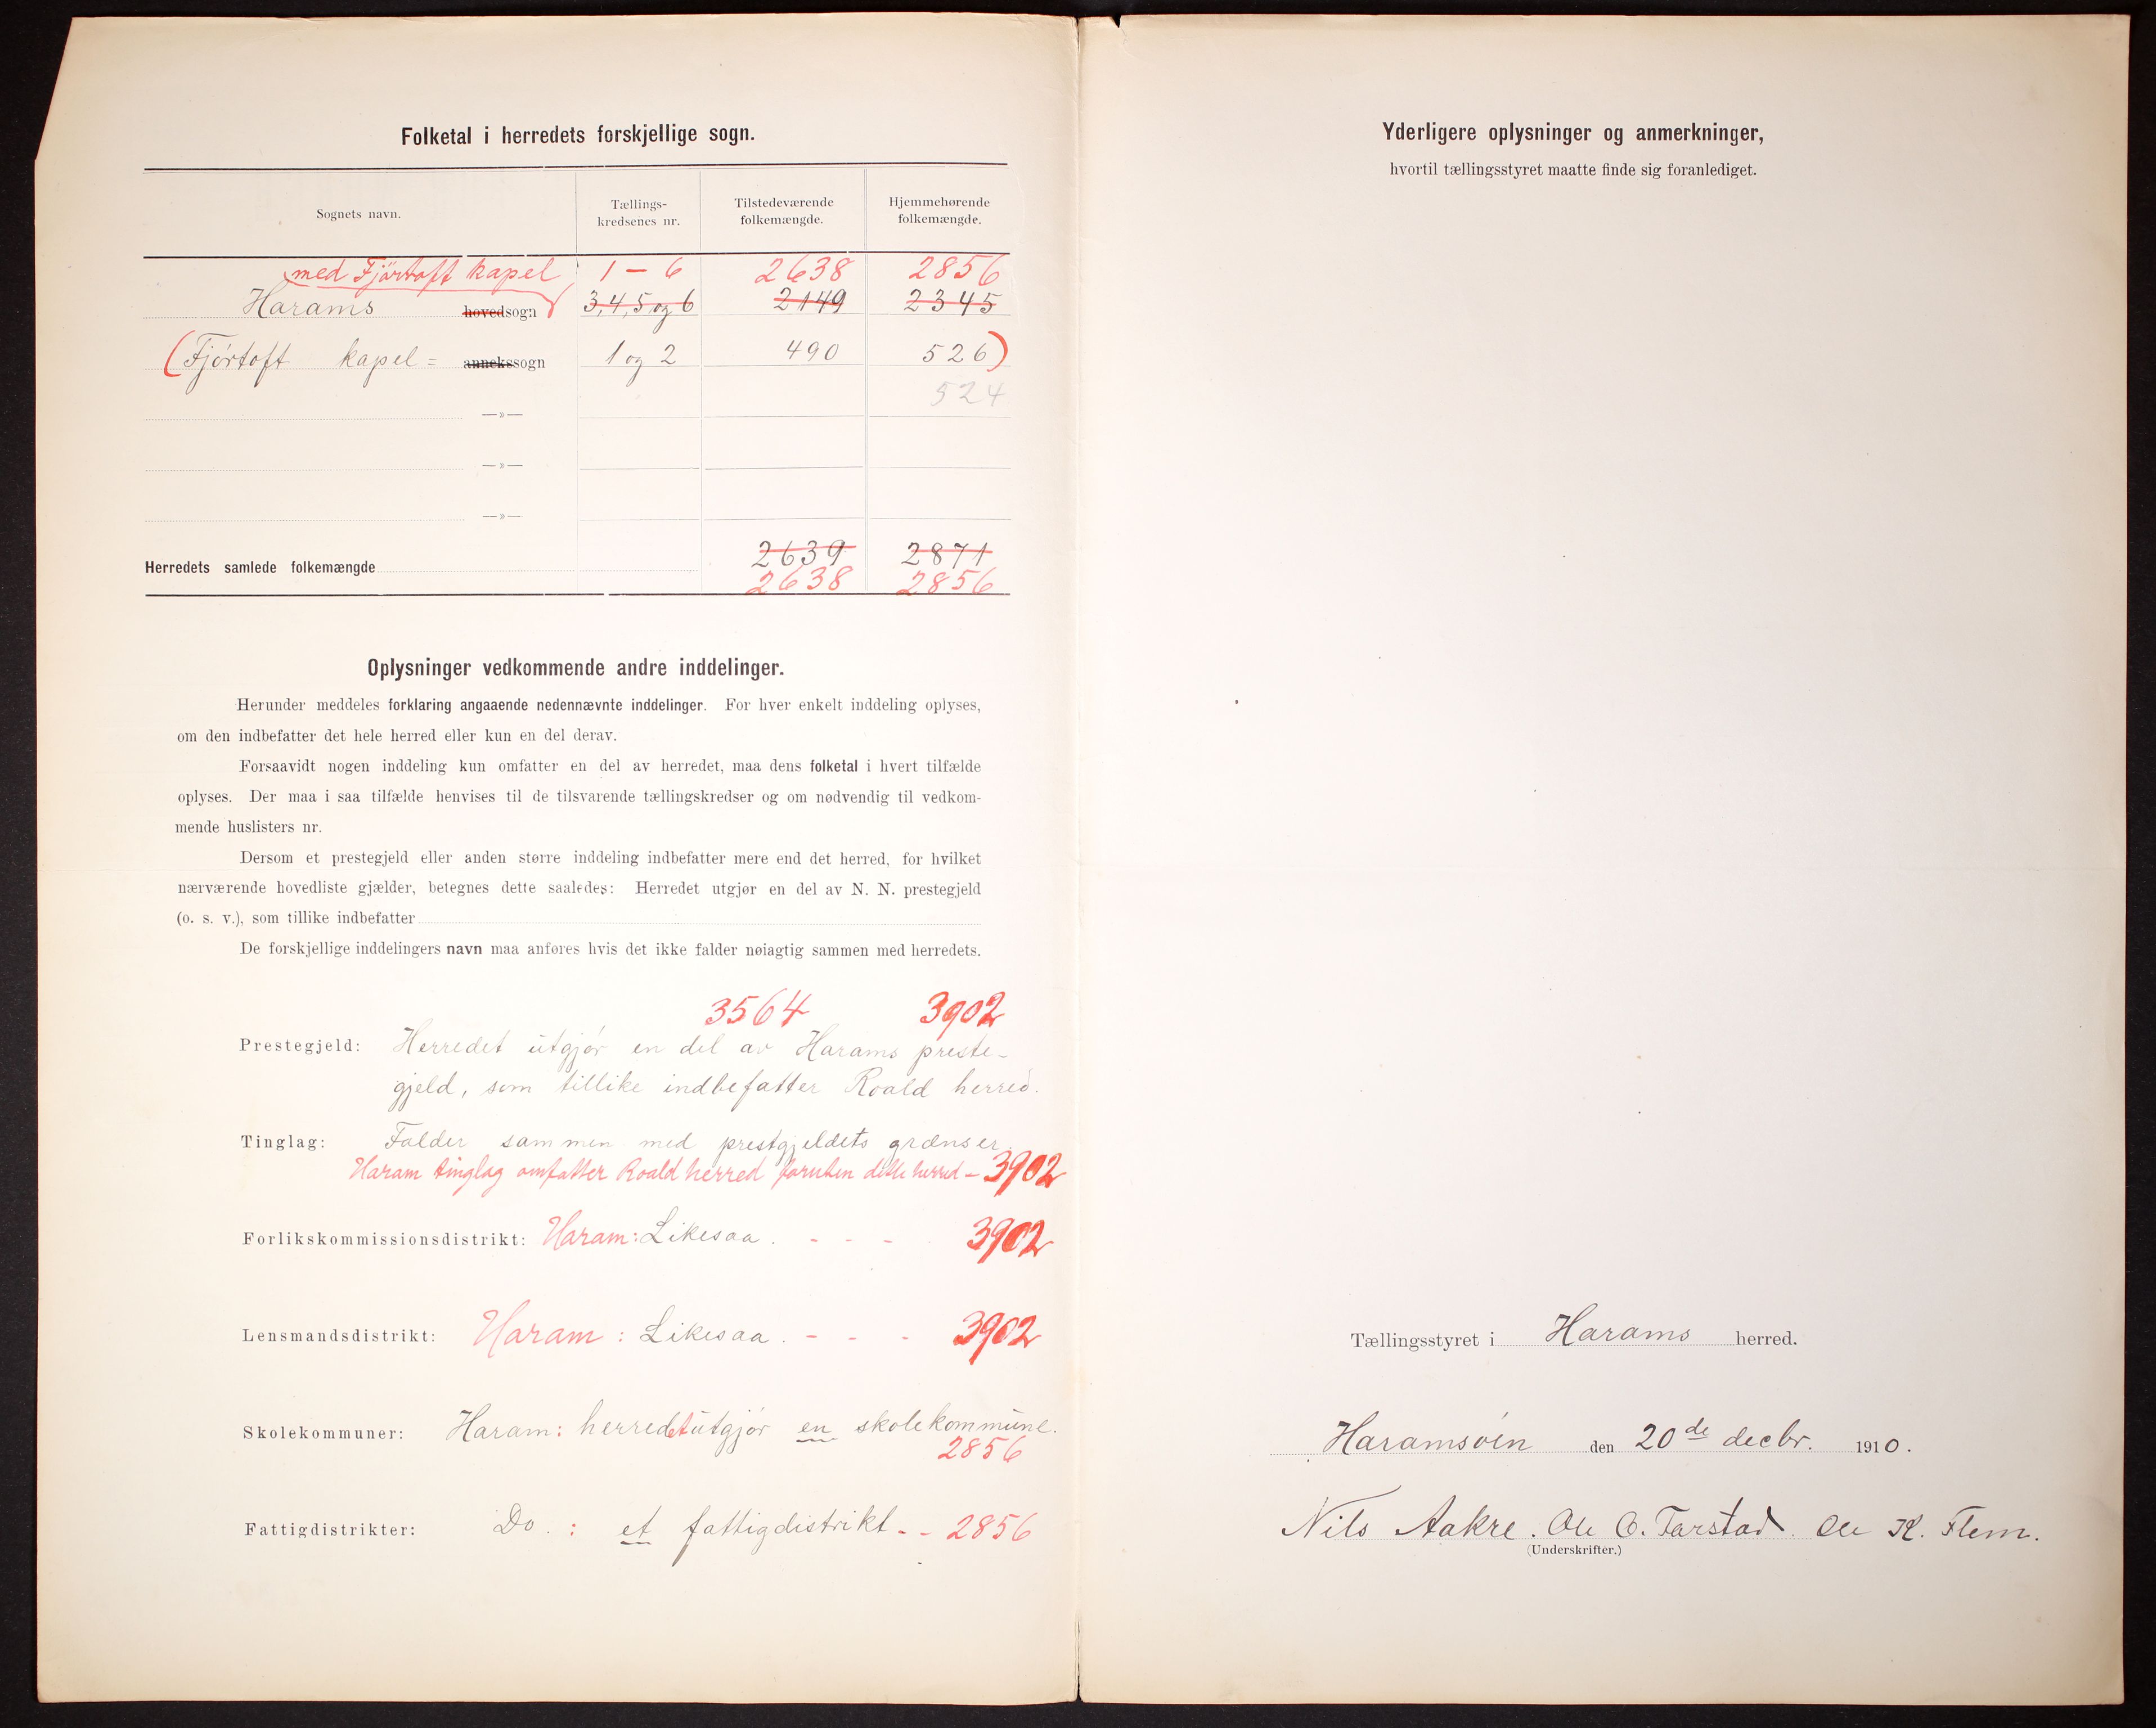 Folketal i herredets forskjellige sogn.
Sognets navn.
Tællings-
kredsenes nr.
Tilstedeværende
folkemængde.
Hjemmehørende
folkemængde.
med Fjørtoft kapel 1 - 6 2638 2856
Harams hovedsogn 3, 4, 5 og 6 2149 2345
(Fjørtoft kapel = annekssogn 1 og 2 490 526)
524
—»—
—»—
—»—
2639 2871
Herredets samlede folkemængde
2638 2856
Oplysninger vedkommende andre inddelinger.
Herunder meddeles forklaring angaaende nedennævnte inddelinger. For hver enkelt inddeling oplyses,
om den indbefatter det hele herred eller kun en del derav.
Forsaavidt nogen inddeling kun omfatter en del av herredet, maa dens folketal i hvert tilfælde
oplyses. Der maa i saa tilfælde henvises til de tilsvarende tællingskredser og om nødvendig til vedkom-
mende huslisters nr.
Dersom et prestegjeld eller anden større inddeling indbefatter mere end det herred, for hvilket
nærværende hovedliste gjælder, betegnes dette saaledes: Herredet utgjør en del av N. N. prestegjeld
(o. s. v.), som tillike indbefatter
De forskjellige inddelingers navn maa anføres hvis det ikke falder nøiagtig sammen med herredets.
3564 3902
Prestegjeld: Herredet utgjør en del av Harams preste-
gjeld, som tillike indbefatter Roald herred.
Tinglag: Falder sammen med prestgjeldets grænser.
Haram tinglag omfatter Roald herred foruten dette herred - 3902
Forlikskommissionsdistrikt: Haram: Likesaa. - - - 3902
Lensmandsdistrikt: Haram: Likesaa. - - - 3902
Skolekommuner: Haram: herredet utgjør en skolekommune.
2856
Fattigdistrikter: Do. : et fattigdistrikt - - 2856
Yderligere oplysninger og anmerkninger,
hvortil tællingsstyret maatte finde sig foranlediget.
Tællingsstyret i Harams herred.
Haramsøen den 20de decbr. 1910.
Nils Aakre. Ole O. Tarstad. Ole K. Flem.
(Underskrifter.)